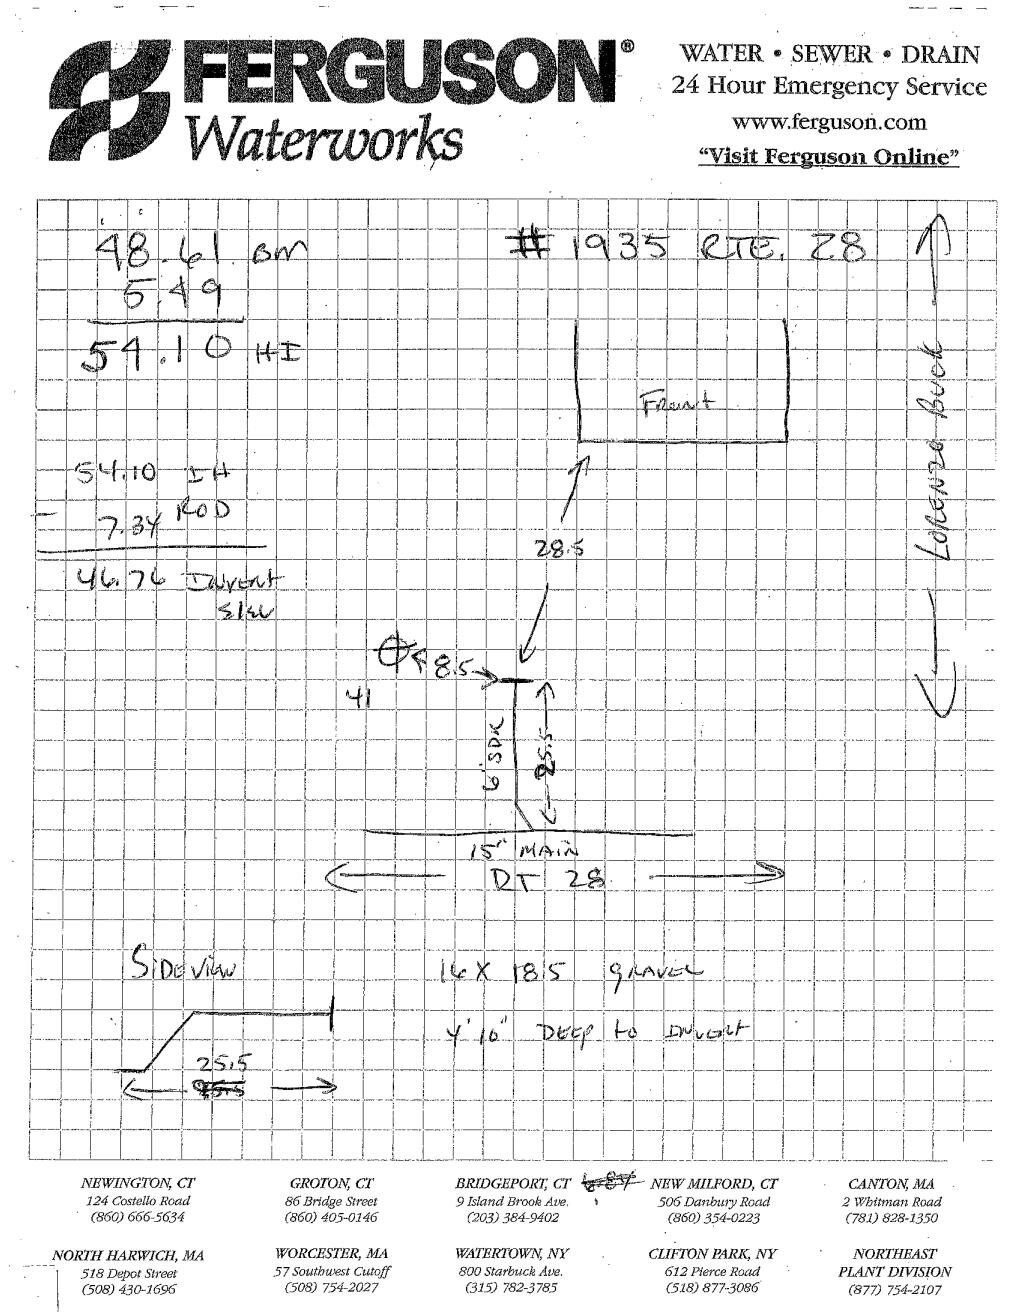 FERGUSON®
Waterworks
WATER • SEWER • DRAIN
24 Hour Emergency Service
www.ferguson.com
"Visit Ferguson Online"
48.61 BM
5.49
54.10 HI
# 1935 RTE. 28
Front
LORENZO BUCK
54.10 IH
- 7.34 ROD
46.76 INVERT
ELEV
28.5
8.5
41
6" SDR
25.5
15" MAIN
RT 28
SIDE VIEW
25.5
16 X 18.5 GRAVEL
4' 10" DEEP to INVERT
NEWINGTON, CT
124 Costello Road
(860) 666-5634
GROTON, CT
86 Bridge Street
(860) 405-0146
BRIDGEPORT, CT
9 Island Brook Ave.
(203) 384-9402
NEW MILFORD, CT
506 Danbury Road
(860) 354-0223
CANTON, MA
2 Whitman Road
(781) 828-1350
NORTH HARWICH, MA
518 Depot Street
(508) 430-1696
WORCESTER, MA
57 Southwest Cutoff
(508) 754-2027
WATERTOWN, NY
800 Starbuck Ave.
(315) 782-3785
CLIFTON PARK, NY
612 Pierce Road
(518) 877-3086
NORTHEAST
PLANT DIVISION
(877) 754-2107